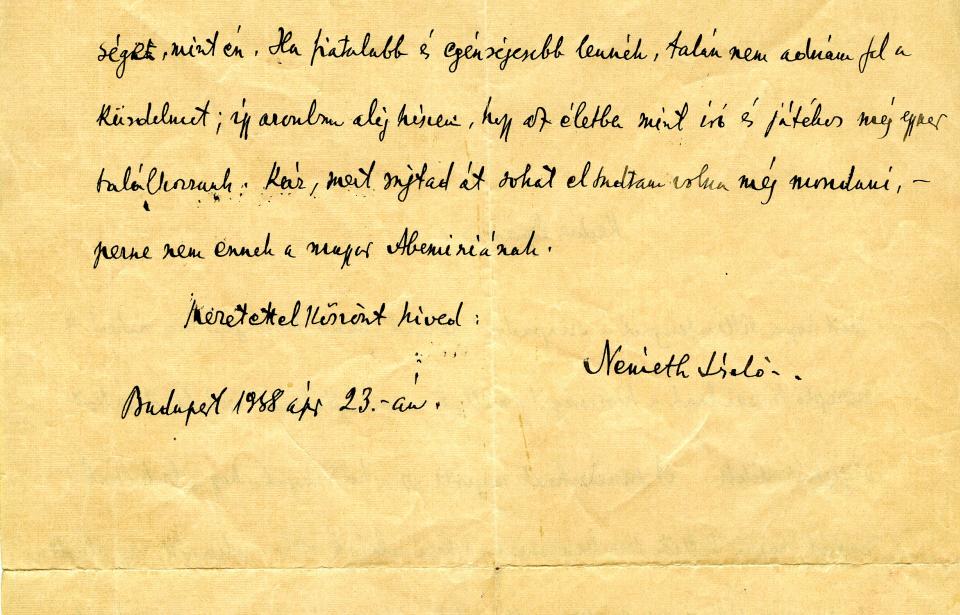 séget, mint én. Ha fiatalabb és egészségesebb lennék, talán nem adnám fel a
küzdelmet; így azonban alig hiszem, hogy az életbe mint író és játékos még egyszer
találkozzunk. Kár, mert rajtad át sokat el tudtam volna még mondani, –
persze nem ennek a magyar Abesziniának.
Szeretettel köszönt hived:
Németh László.
Budapest 1958 ápr 23.-án.